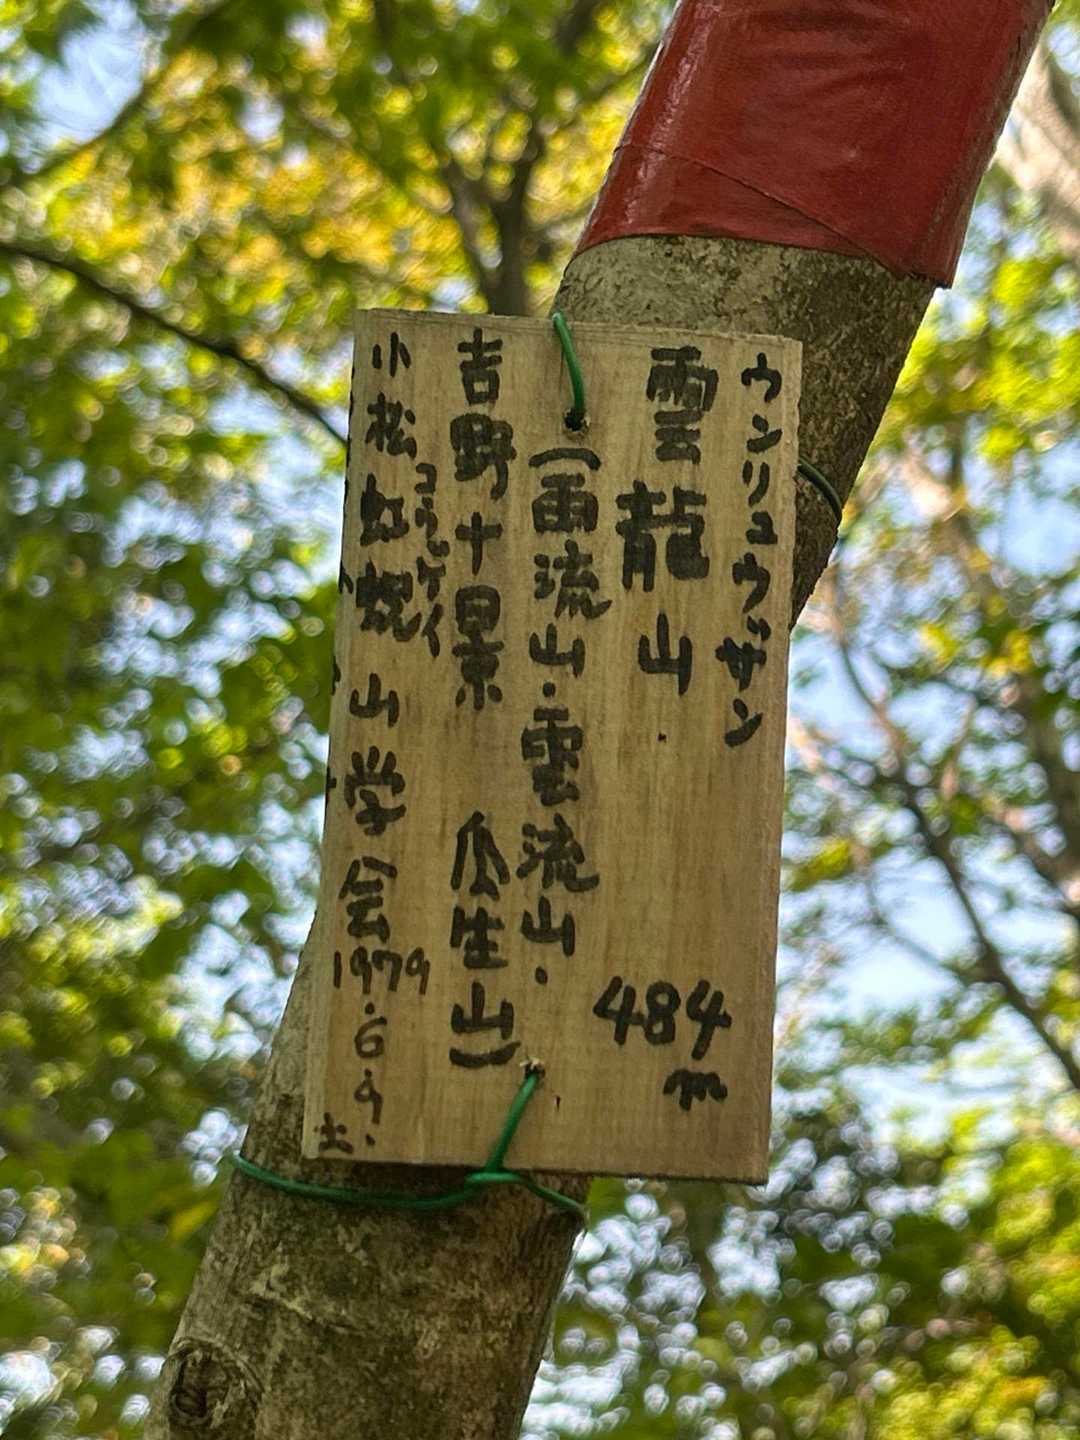 ウンリュウザン
雲龍山 484m
(雨流山・雲流山・
吉野十景 瓜生山)
コウゲイ
小松虹睨山学会 1979.6.9.土